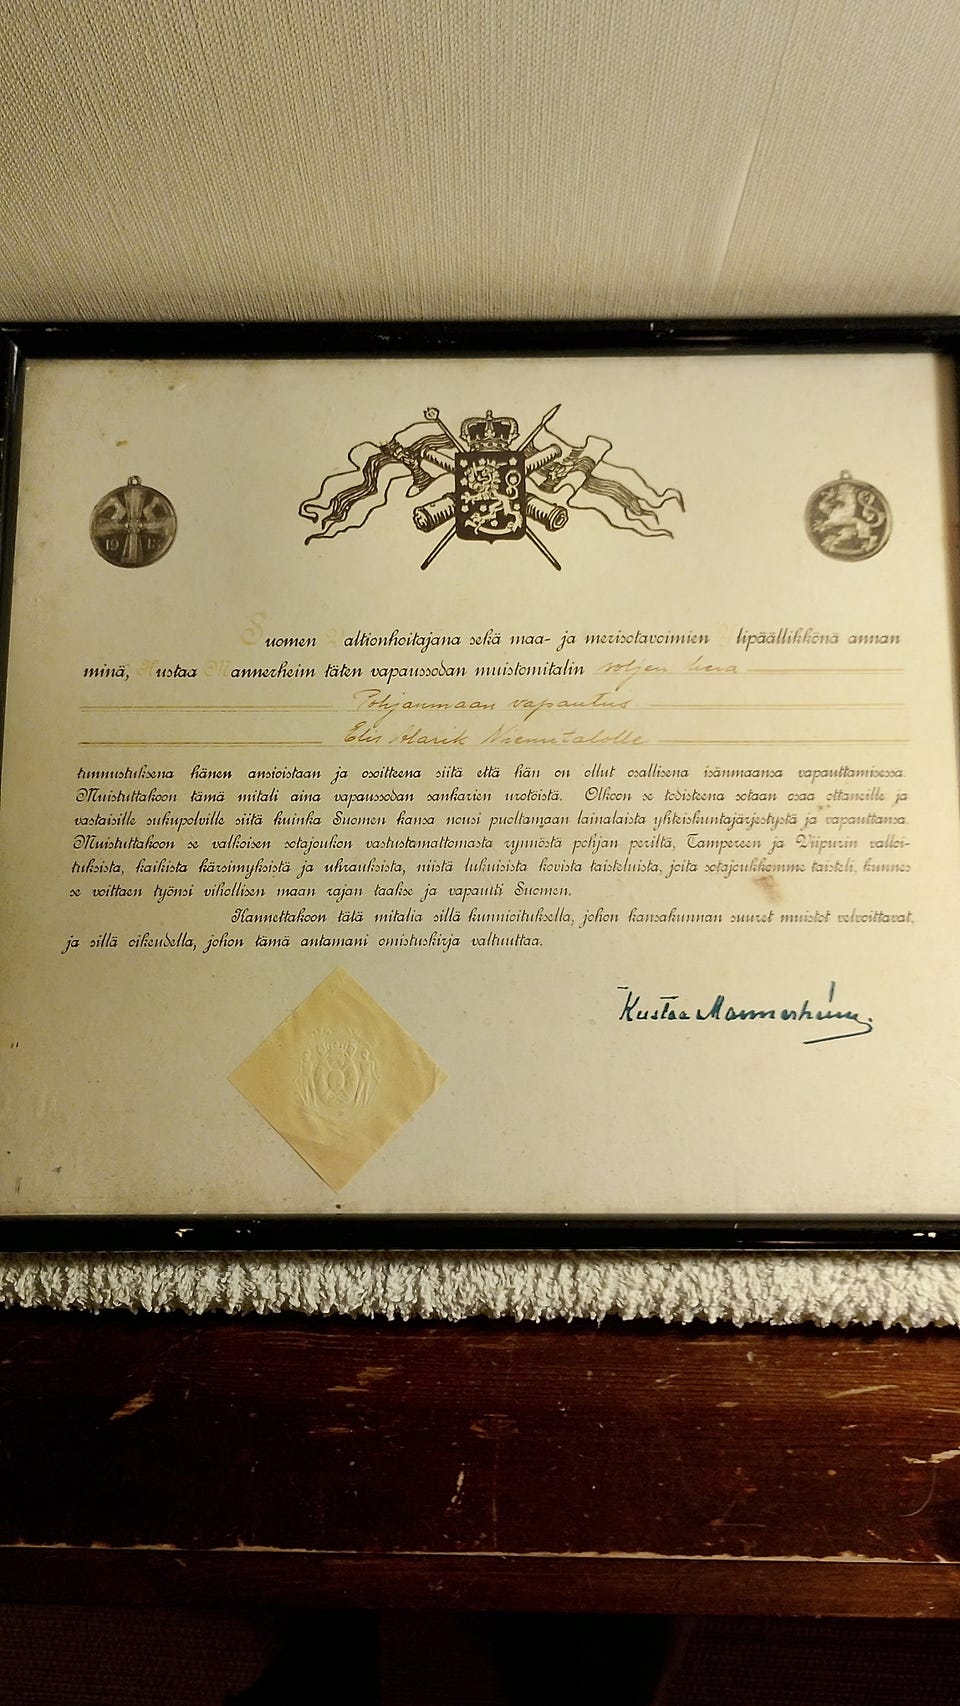 19 18
Suomen Valtionhoitajana sekä maa- ja merisotavoimien Ylipäällikkönä annan
minä, Kustaa Mannerheim täten vapaussodan muistomitalin soljen kera
Pohjanmaan vapautus
Elis Alarik Niemitalolle
tunnustuksena hänen ansioistaan ja osoitteena siitä että hän on ollut osallisena isänmaansa vapauttamisessa.
Muistuttakoon tämä mitali aina vapaussodan sankarien urotöistä. Olkoon se todisteena sotaan osaa ottaneille ja
vastaisille sukupolville siitä kuinka Suomen kansa nousi puoltamaan lainalaista yhteiskuntajärjestystä ja vapauttansa.
Muistuttakoon se valkoisen sotajoukon vastustamattomasta rynnöstä pohjan periltä, Tampereen ja Viipurin valloi-
tuksista, kaikista kärsimyksistä ja uhrauksista, niistä lukuisista kovista taisteluista, joita sotajoukkomme taisteli, kunnes
se voittaen työnsi vihollisen maan rajan taakse ja vapautti Suomen.
Kannettakoon tätä mitalia sillä kunnioituksella, johon kansakunnan suuret muistot velvoittavat,
ja sillä oikeudella, johon tämä antamani omistuskirja valtuuttaa.
Kustaa Mannerheim.